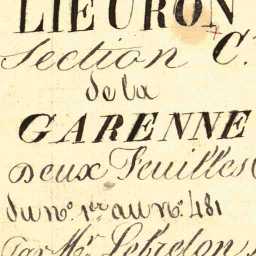 LIEURON
Section C.
de la
GARENNE
Deux Feuilles
du n.° 1.er au n.° 481
Par M.r Lebreton